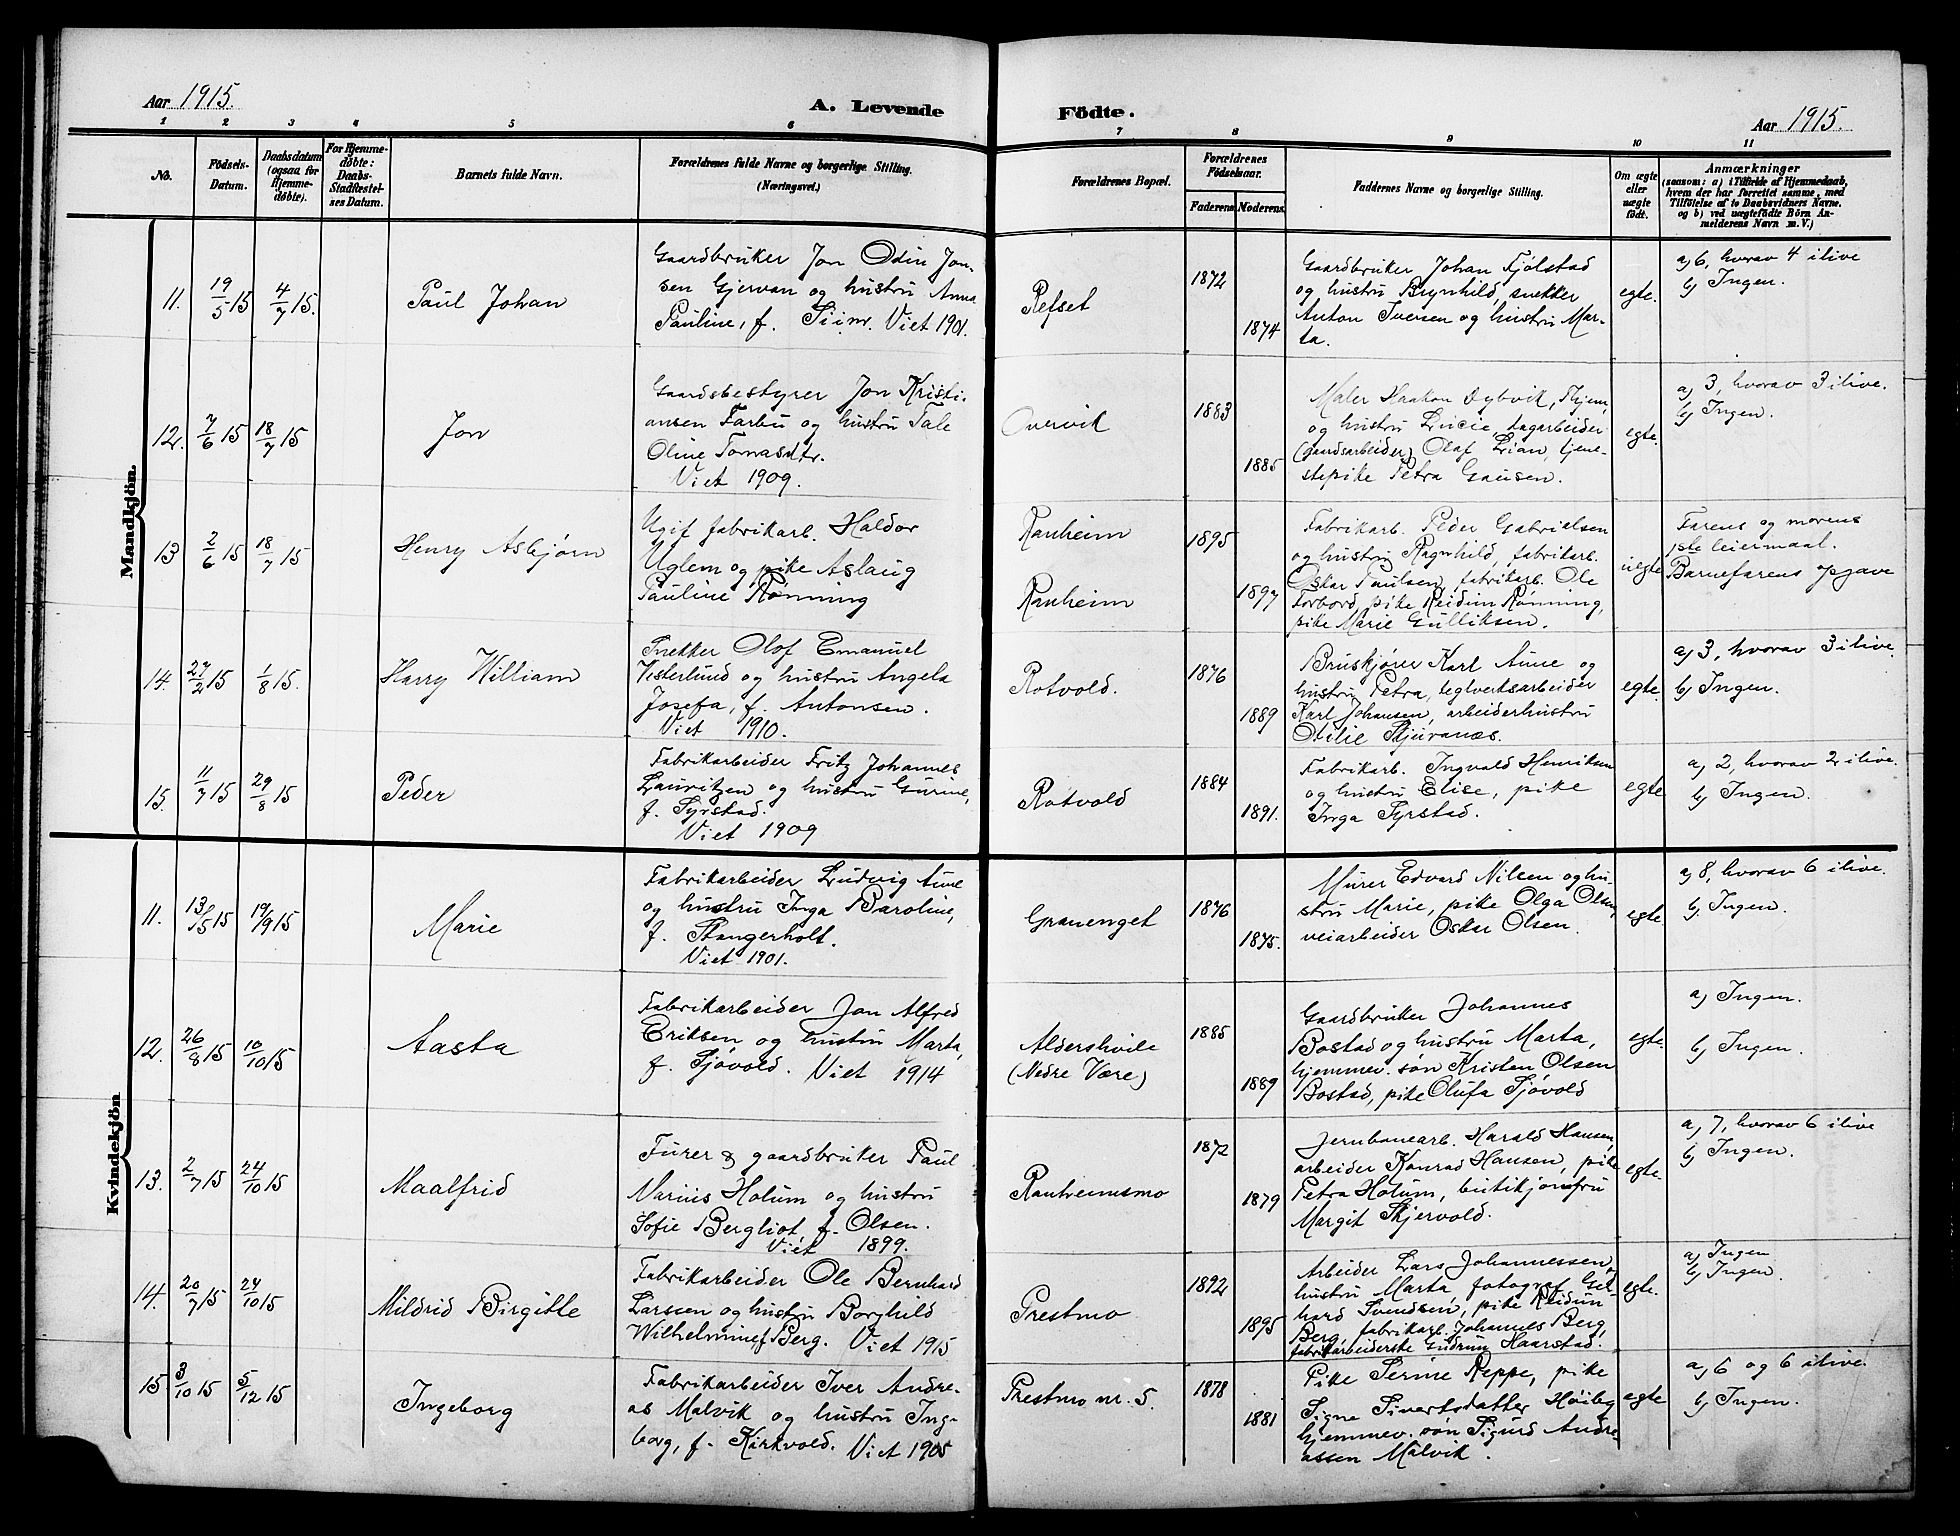 Aar 1915.
A. Levende
Födte.
Aar 1915.
1 2 3 4 5 6 7 8 9 10 11
No.
Födsels-
Datum.
Daabsdatum
(ogsaa for
Hjemme-
døbte).
For Hjemme-
døbte:
Daabs-
Stadfæstel-
ses Datum.
Barnets fulde Navn.
Forældrenes fulde Navne og borgerlige Stilling.
(Næringsvei.)
Forældrenes Bopæl.
Forældrenes
Födselsaar.
Faderens. Moderens.
Faddernes Navne og borgerlige Stilling.
Om ægte
eller
uægte
født.
Anmærkninger
(saasom: a) i Tilfælde af Hjemmedaab,
hvem der har forrettet samme, med
Tilföielse af to Daabsvidners Navne.
og b) ved uægtefödte Börn An-
melderens Navn m. V.)
Mandkjön.
11. 19/5 15 4/7 15.
Paul Johan
Gaardbruker Jon Odin Jon-
sen Gjervan og hustru Anna
Pauline, f. Viet 1901.
Refset
1872
1874
Gaardbruker Johan Fjølstad
og hustru Brynhild, snekker
Anton Iversen og hustru Mar-
ta.
egte.
a) 6, hvorav 4 ilive
b) Ingen.
12. 7/6 15 18/7 15
Jon
Gaardsbestyrer Jon Kristi-
ansen Farbu og hustru Tale
Oline Tomasdtr.
Viet 1909.
Overvik
1883
1885
Maler Haakon Dybvik,
og hustru Lucie, dagarbeider
(gaardsarbeider) Olaf Lian, tjene-
stepike Petra Gausen.
egte.
a) 3, hvorav 3 ilive.
b) Ingen.
13 2/6 15 18/7 15
Henry Asbjørn
Ugif. fabrikarb. Haldor
Uglem og pike Aslaug
Pauline Rønning
Ranheim
Ranheim
1895
1897
Fabrikarb. Peder Gabrielsen
og hustru Ragnhild, fabrikarb.
Oskar Paulsen, fabrikarb. Ole
Forbord, pike Reidun Rønning,
pike Marie Gulliksen.
uegte
Farens og morens
1ste leiermaal.
Barnefarens opgave
14. 27/2 15 1/8 15.
Harry William
Snekker Olof Emanuel
Vesterlund og hustru Angela
Josefa, f. Antonsen.
Viet 1910.
Rotvold.
1876
1889
Bruskjører Karl Aune og
hustru Petra, teglverksarbeider
Karl Johansen, arbeiderhustru
Otilie Skjuranæs.
egte.
a) 3, hvorav 3 ilive.
b) Ingen.
15. 11/7 15 29/8 15
Peder
Fabrikarbeider Fritz Johannes
Lauritzen og hustru Gurine,
f. Syrstad.
Viet 1909
Rotvold
1884
1891.
Fabrikarb. Ingvald Henriksen
og hustru Elise, pike
Inga Syrstad.
egte
a) 2, hvorav 2 ilive.
b) Ingen.
Kvindekjön
11. 13/5 15 19/9 15
Marie
Fabrikarbeider Ludvig Aune
og hustru Inga Baroline,
f. Stangerholt.
Viet 1901.
Granenget
1876
1875.
Murer Edvard Nilsen og hu-
stru Marie, pike Olga Olsen,
veiarbeider Oskar Olsen.
egte.
a) 8, hvorav 6 ilive.
b) Ingen.
12. 26/8 15 10/10 15
Aasta
Fabrikarbeider Jon Alfred
Eriksen og hustru Marta,
f. Sjøvold. Viet 1914
Aldershvile
(Nedre Være)
1885
1889
Gaardbruker Johannes
Bostad og hustru Marta,
hjemmev. søn Kristen Olsen
Bostad, pike Olufa Sjøvold
egte.
a) Ingen.
b) Ingen.
13. 2/7 15 24/10 15
Maalfrid
Furer & gaardbruker Paul
Marius Holum og hustru
Sofie Bergliot, f. Olsen.
Viet 1899.
Ranheimsmo
1872
1879
Jernbanearb. Harald Hansen,
arbeider Konrad Hansen, pike
Petra Holum, butikjomfru
Margit Skjervold.
egte.
a) 7, hvorav 6 ilive
b) Ingen.
14. 20/7 15 24/10 15
Mildrid Birgitte
Fabrikarbeider Ole Bernhard
Larssen og hustru Borghild
Wilhelmine f. Berg. Viet 1915
Prestmo
1892
1895
Arbeider Lars Johannessen, og
hustru Marta, fotograf Gel-
hard Svendsen, pike Reidun
Berg, fabrikarb. Johannes Berg,
fabrikarbeiderske Gudrun Haarstad.
egte.
a) Ingen
b) Ingen.
15 3/10 15 5/12 15
Ingeborg
Fabrikarbeider Iver Andre-
as Malvik og hustru Inge-
borg, f. Kirkvold. Viet 1905
Prestmo nr. 5.
1878
1881
Pike Serine Reppe, pike
Signe Sivertsdatter Høiby
hjemmev. søn Sigurd Andre-
assen Malvik.
egte
a) 6 og 6 ilive.
b) Ingen.